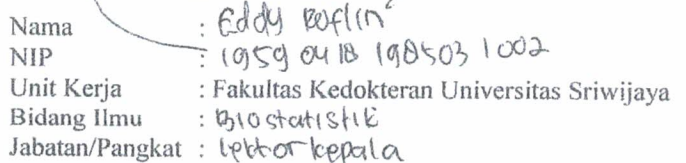 Nama : Eddy Roflin
NIP : 19590418 198503 1 002
Unit Kerja : Fakultas Kedokteran Universitas Sriwijaya
Bidang Ilmu : Biostatistik
Jabatan/Pangkat : lektor kepala